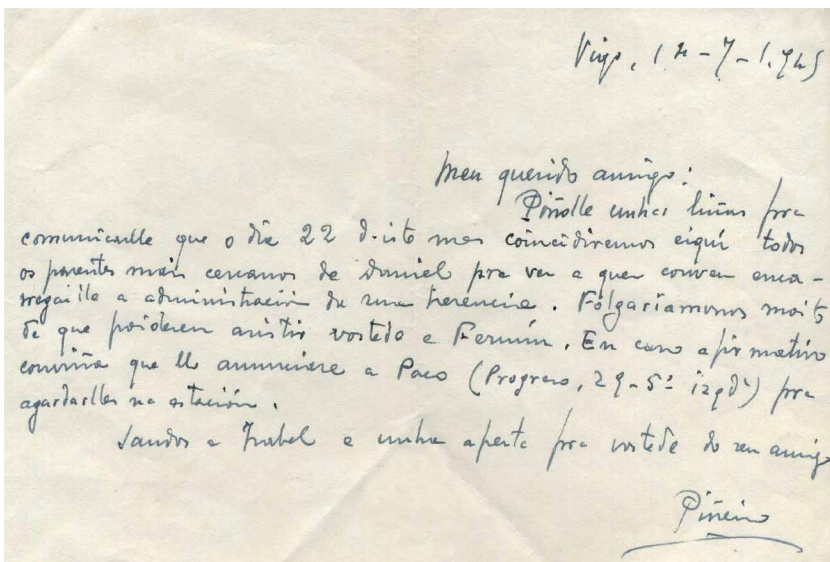 Vigo, 14-7-1.945
Meu querido amigo:
Poñolle unhas liñas pra
comunicarlle que o día 22 d-iste mes coincidiremos eiquí todos
os parentes mais cercanos de Daniel pra ver a quen conven enca-
rregarlle a administración da sua herencia. Folgariamonos moito
de que poideran asistir vostede e Fermín. En caso afirmativo
conviña que llo anunciase a Paco (Progreso, 29-5º izqdª) pra
agardarlles na estación.
Saúdos a Isabel e unha aperta pra vostede do seu amigo
Piñeiro